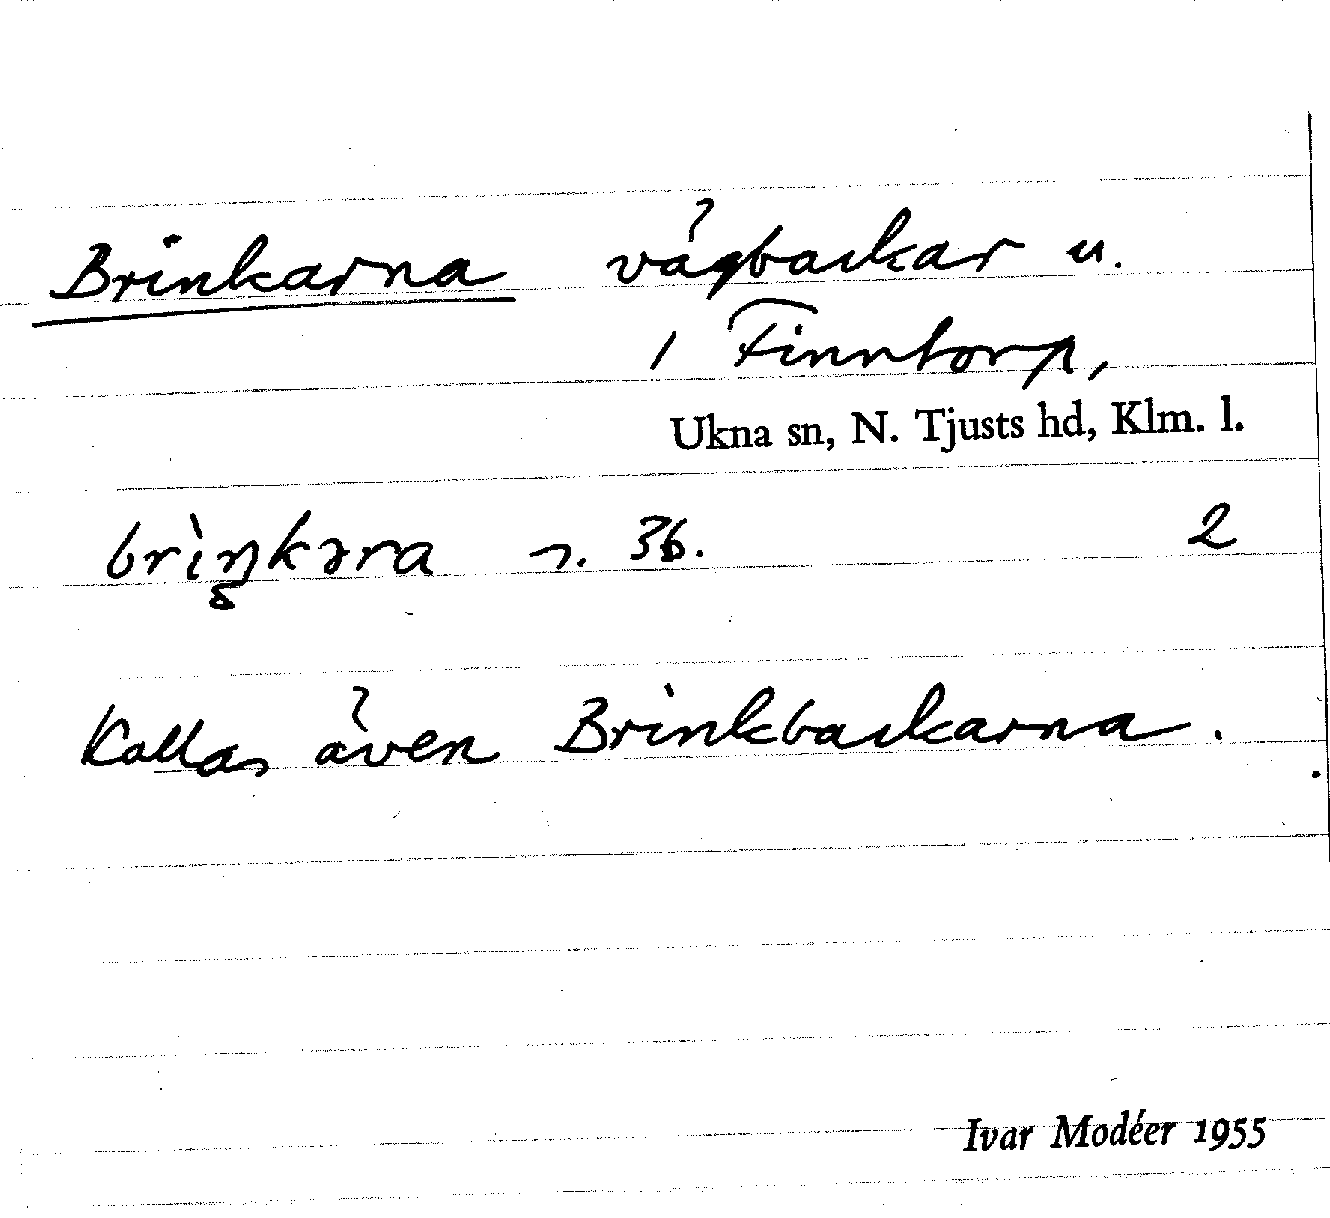 Brinkarna vägbackar u.
1 Finntorp,
Ukna sn, N. Tjusts hd, Klm. l.
brìŋkəra n. 36. 2
Kallas även Brinkbackarna.
Ivar Modéer 1955